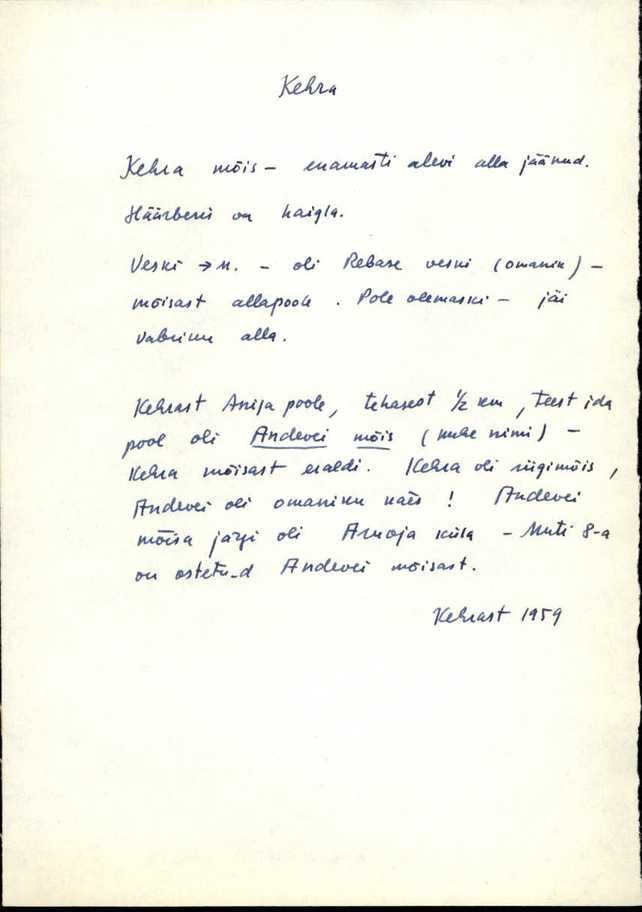 Kehra
Kehra mõis – enamasti alevi alla jäänud.
Häärberis on haigla.
Veski → N. – oli Rebase veski (omanik) –
mõisast allapoole. Pole olemaski – jäi
vabriku alla.
Kehrast Anija poole, tehasest 1/2 km, teest ida
pool oli Andevei mõis (mehe nimi) –
Kehra mõisast eraldi. Kehra oli riigimõis,
Andevei oli omaniku käes! Andevei
mõisa järgi oli küla – 8-a
on ostetud Andevei mõisast.
Kehrast 1959